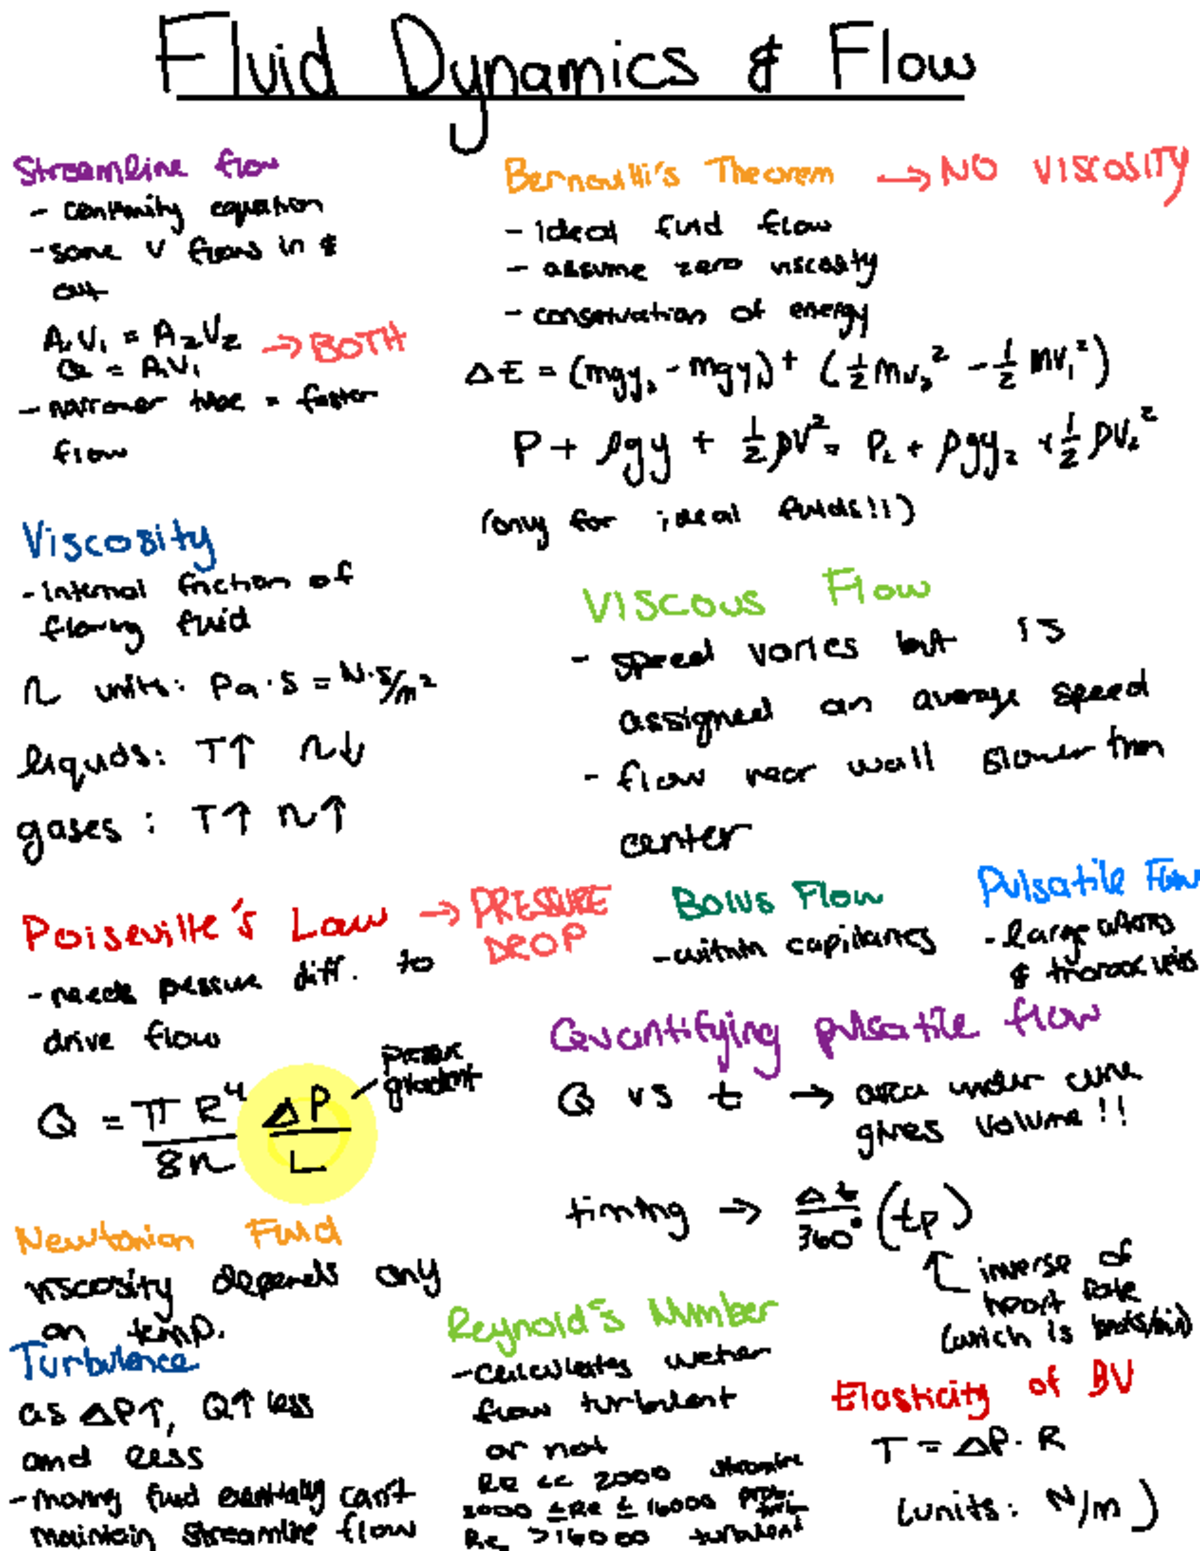 Fluid Dynamics & Flow
Streamline flow
- continuity equation
- same V flows in &
out
A₁V₁ = A₂V₂ → BOTH
Q = A₁V₁
- narrower tube = faster
flow
Bernoulli's Theorem → NO VISCOSITY
- ideal fluid flow
- assume zero viscosity
- conservation of energy
ΔE = (mgy₂ - mgy₁) + (½mv₂² - ½mv₁²)
P + ρgy + ½ρV² = P₂ + ρgy₂ + ½ρV₂²
(only for ideal fluids!!)
Viscosity
- internal friction of
flowing fluid
η units: Pa·s = N·s/m²
liquids: T↑ η↓
gases: T↑ η↑
Viscous Flow
- speed varies but is
assigned an average speed
- flow near wall slower than
center
Poiseville's Law → PRESSURE
DROP
- needs pessure diff. to
drive flow
Q = πR⁴/8η ΔP/L
pressure
gradient
Bolus Flow
- within capillaries
Pulsatile Flow
- large arteries
& thoracic veins
Quantifying pulsatile flow
Q vs t → area under curve
gives volume!!
timing → Δt/360° (tp)
inverse of
heart rate
(which is beats/min)
Newtonian Fluid
viscosity depends only
on temp.
Turbulence
as ΔP↑, Q↑ less
and less
- moving fluid eventually can't
maintain streamline flow
Reynold's Number
- calculates wether
flow turbulent
or not
Re << 2000 streamline
2000 ≤ Re ≤ 16000 prob.
turb.
Re > 16000 turbulent
Elasticity of BV
T = ΔP · R
(units: N/m)